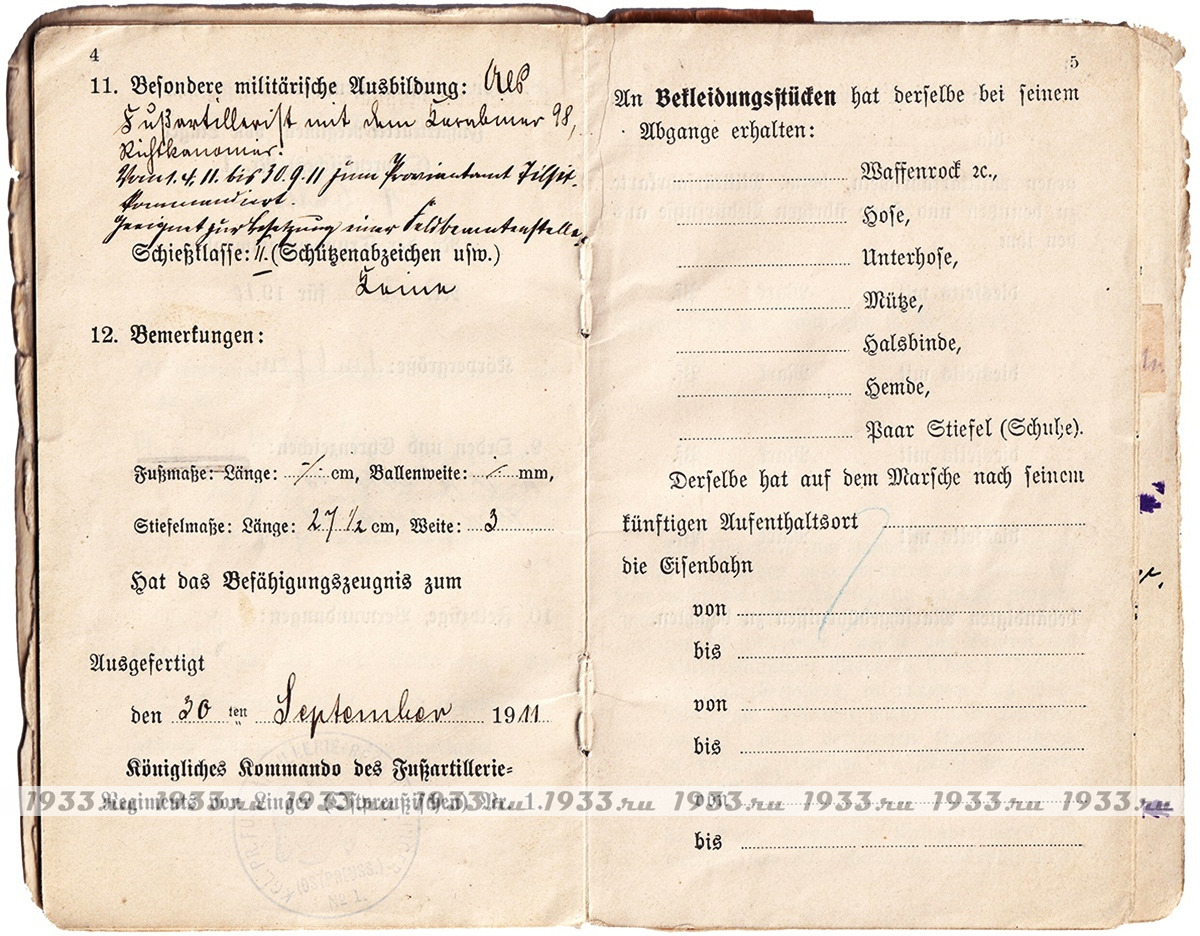 4
11. Besondere militärische Ausbildung: Als
Fußartillerist mit dem Karabiner 98,
Richtkanonier.
Vom 1.4.11. bis 30.9.11 zum Proviantamt Tilsit
kommandiert.
Geeignet zur Besetzung einer Feldbeamtenstelle.
Schießklasse: II. (Schützenabzeichen usw.)
Keine
12. Bemerkungen:
Fußmaße: Länge: -/- cm, Ballenweite: -/- mm,
Stiefelmaße: Länge: 27 1/2 cm, Weite: 3
Hat das Befähigungszeugnis zum
Ausgefertigt
den 30 ten September 1911
Königliches Kommando des Fußartillerie-
Regiments von Linger (Ostpreußischen) Nr. 1.
5
An Bekleidungsstücken hat derselbe bei seinem
Abgange erhalten:
Waffenrock ꝛc.,
Hose,
Unterhose,
Mütze,
Halsbinde,
Hemde,
Paar Stiefel (Schuhe).
Derselbe hat auf dem Marsche nach seinem
künftigen Aufenthaltsort
die Eisenbahn
von
bis
von
bis
von
bis
1933.ru 1933.ru 1933.ru 1933.ru 1933.ru 1933.ru 1933.ru 1933.ru 1933.ru
(OSTPREUSS.)
No 1.